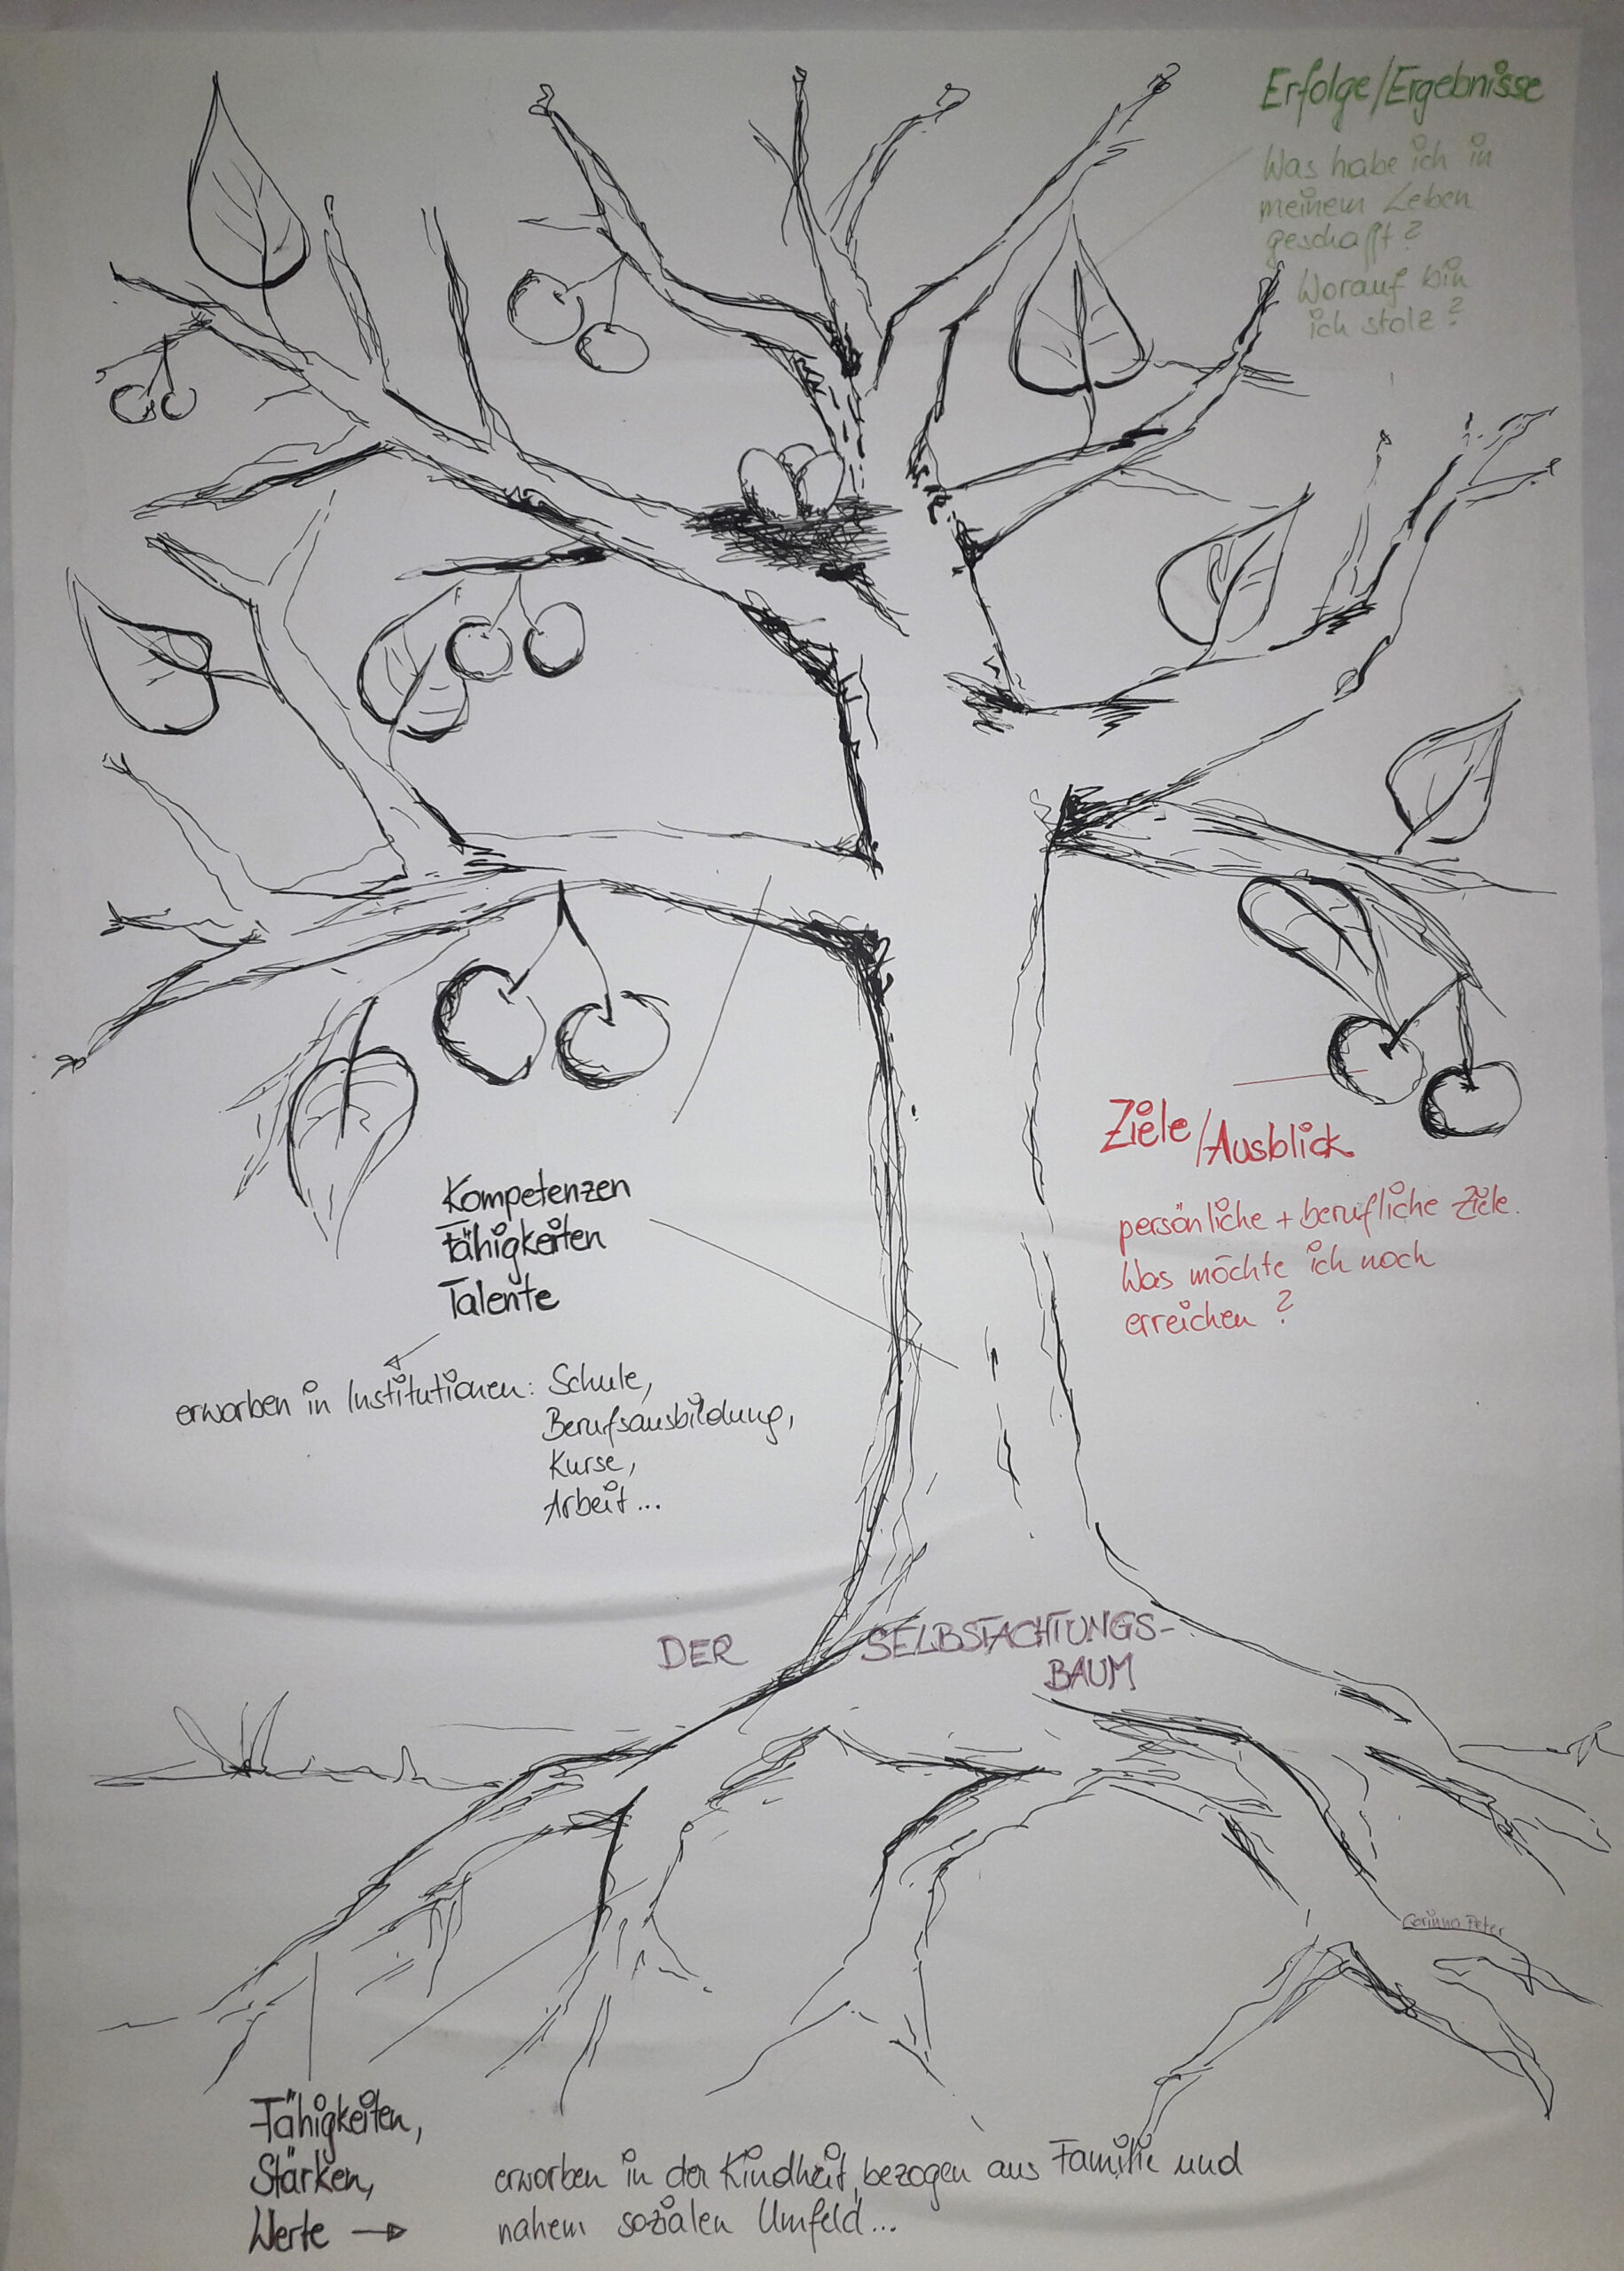 Erfolge/Ergebnisse
Was habe ich in
meinem Leben
geschafft?
Worauf bin
ich stolz?
Ziele/Ausblick
persönliche + berufliche Ziele.
Was möchte ich noch
erreichen?
Kompetenzen
Fähigkeiten
Talente
erworben in Institutionen: Schule,
Berufsausbildung,
Kurse,
Arbeit...
DER SELBSTACHTUNGS-
BAUM
Corinna Peter
Fähigkeiten,
Stärken,
Werte →
erworben in der Kindheit, bezogen aus Familie und
nahem sozialen Umfeld...